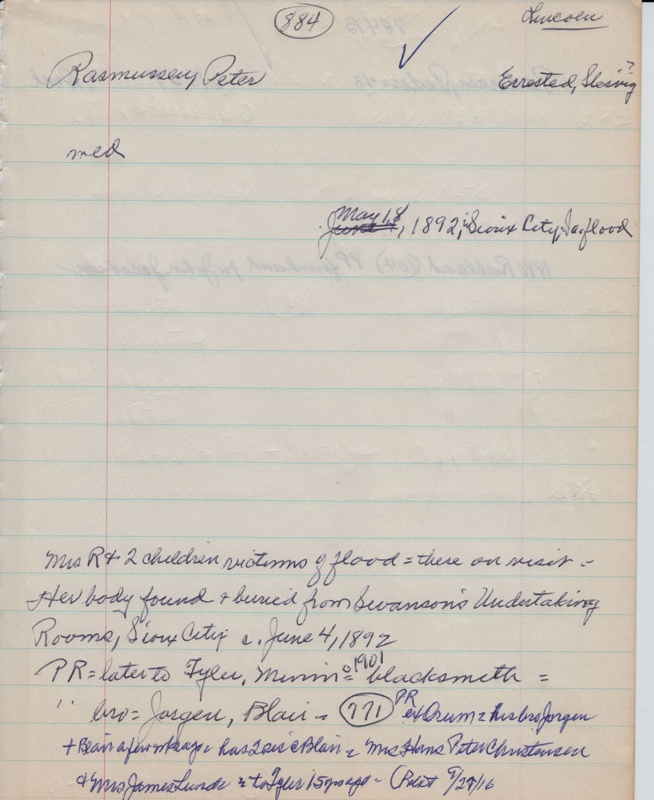 884
Lincoln
Rasmussen, Peter
Errested, Slesvig ?
med
June 4 May 18, 1892, Sioux City, Ia flood
Mrs R + 2 children victims of flood = there on visit =
Her body found + buried from Swanson's Undertaking
Rooms, Sioux City c. June 4, 1892
PR = later to Tyler, Minn = c 1901 blacksmith =
" bro = Jorgen, Blair = 771 PR ex Orum = his bro Jorgen
+ Blair a few wks ago = has 2 sis c Blair = Mrs Hans Peter Christensen
+ Mrs James Lunde = to Tyler 15 yrs ago =